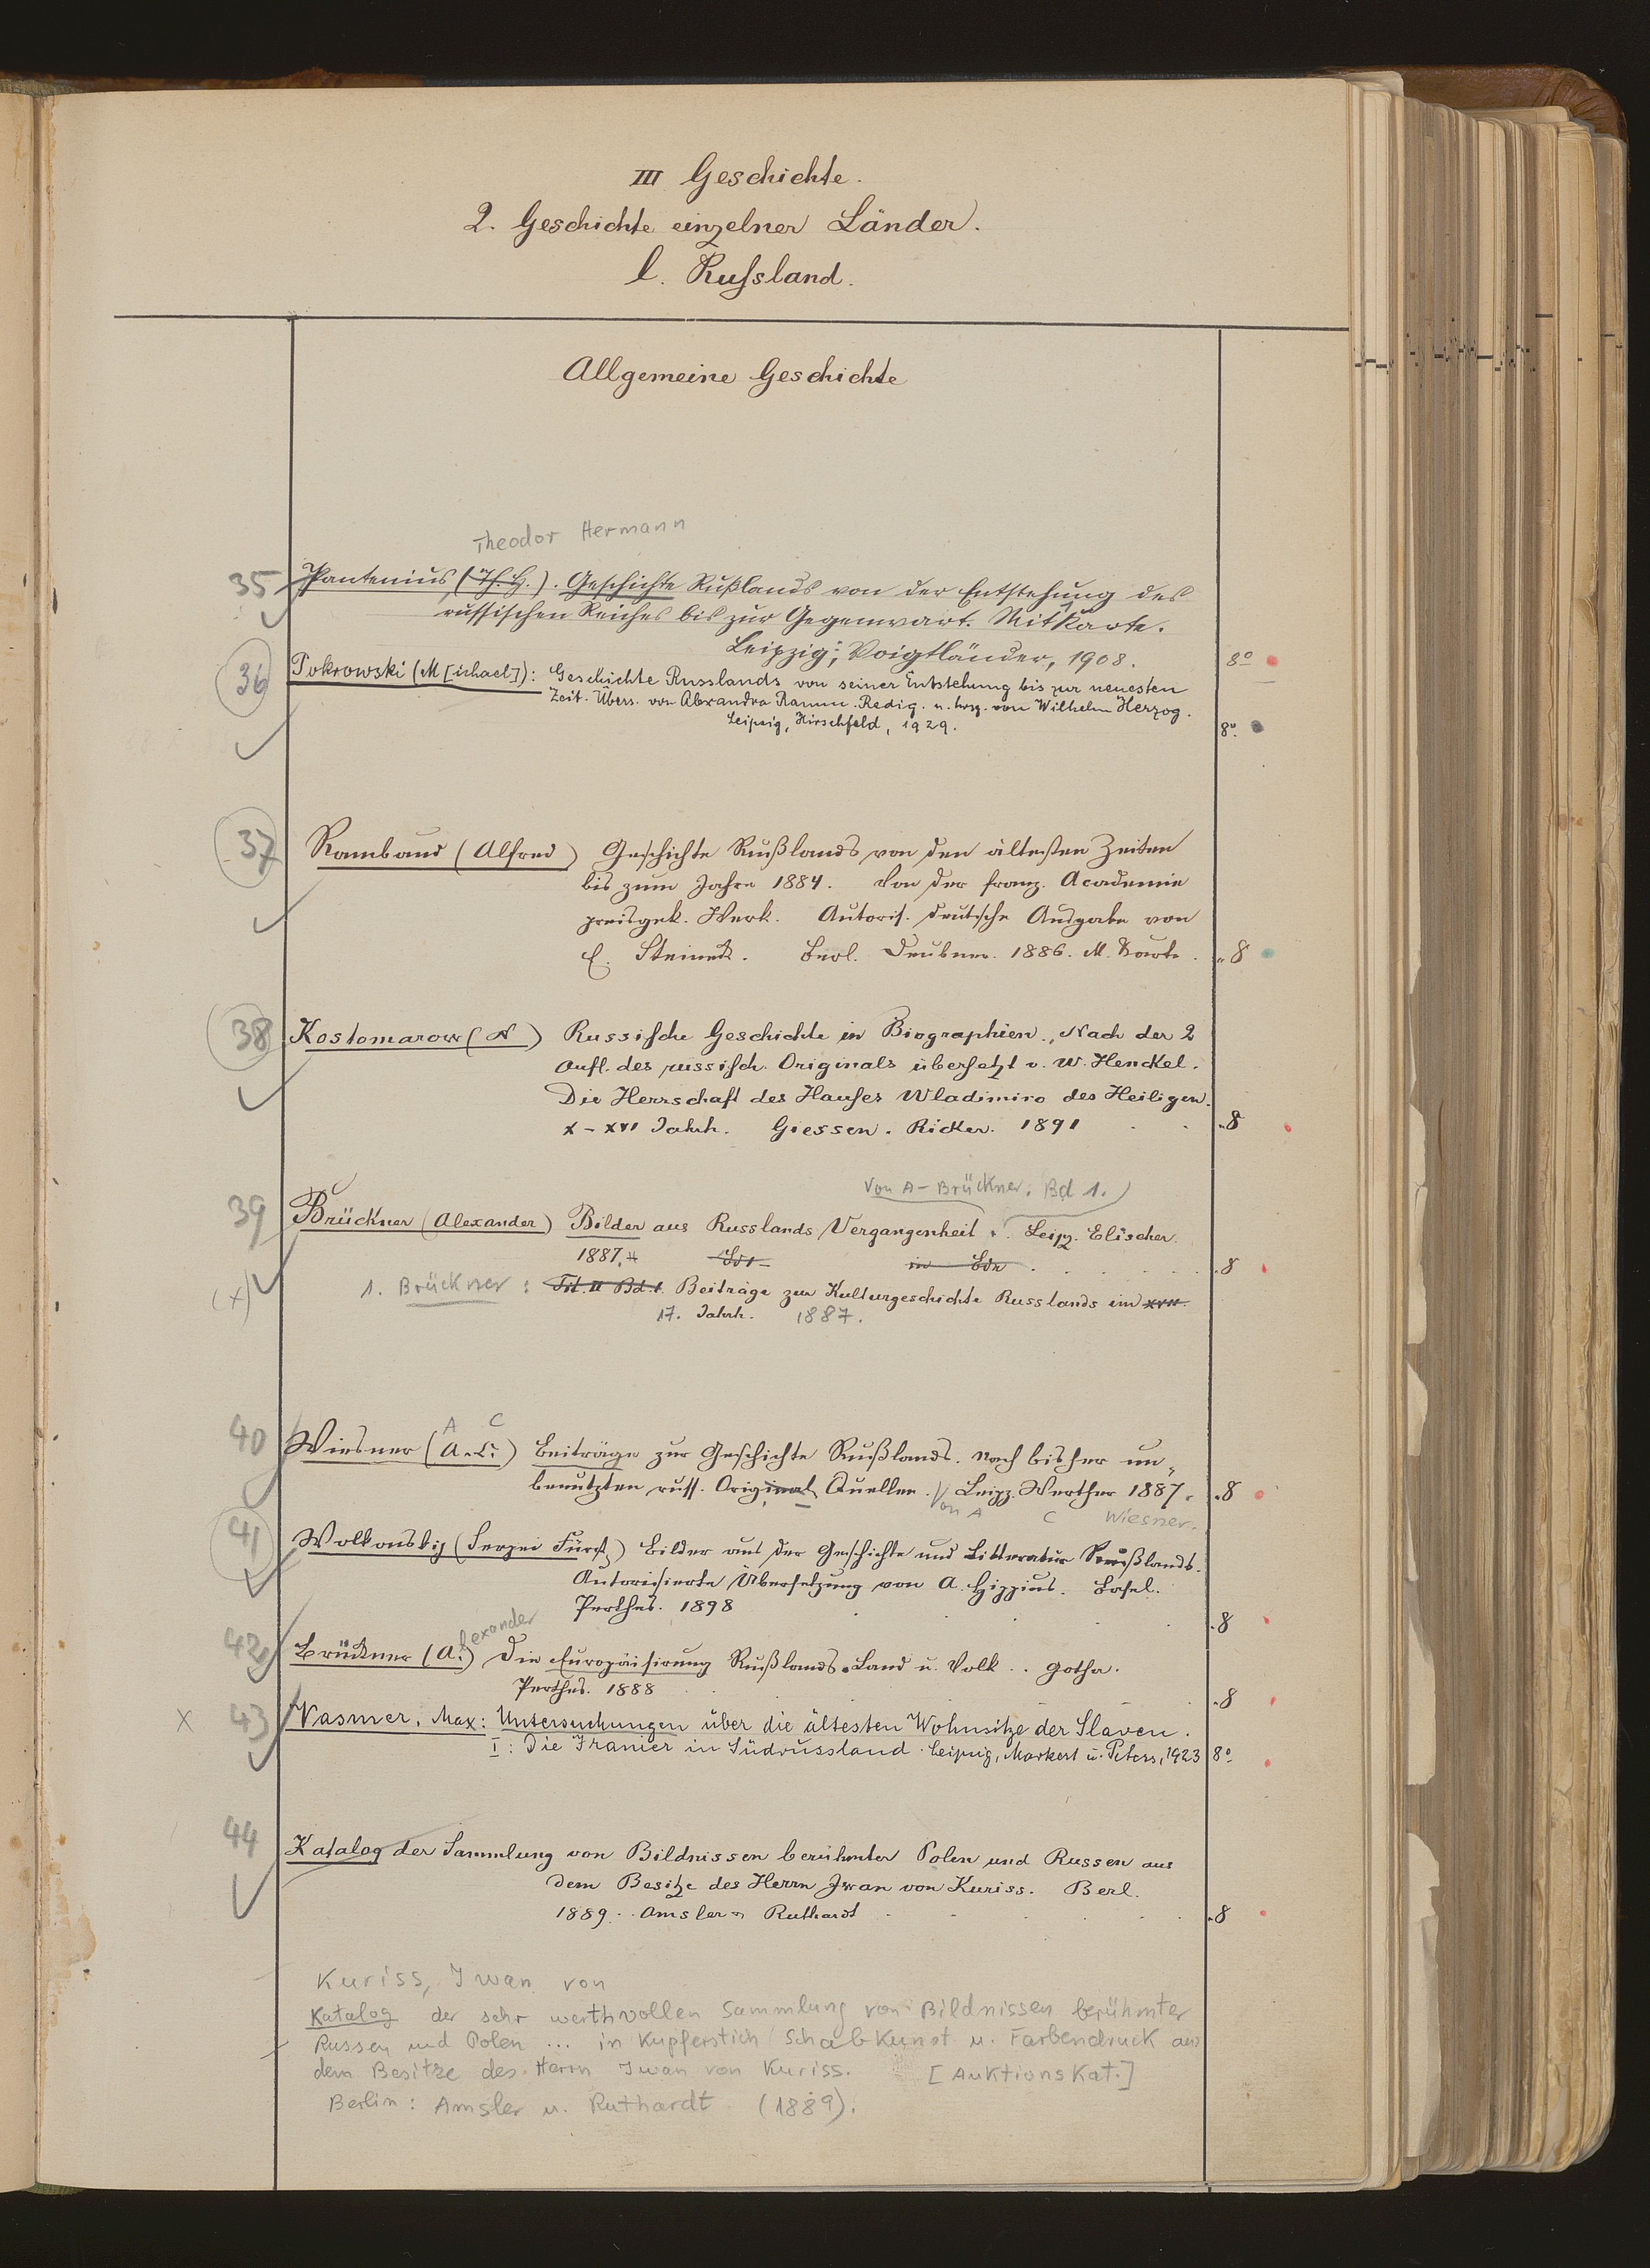 III Geschichte.
2. Geschichte einzelner Länder.
l. Russland.
Allgemeine Geschichte
Theodor Hermann
35 Pantenius (Th. H.). Geschichte Rußlands von der Entstehung des
russischen Reiches bis zur Gegenwart. Mit 1 Karte.
Leipzig: Voigtländer, 1908. 8°
36 Pokrowski (M[ichael]): Geschichte Russlands von seiner Entstehung bis zur neuesten
Zeit. Übers. von Alexandra Ramm. Redig. u. hrsg. von Wilhelm Herzog.
Leipzig, Hirschfeld, 1929. 8°.
37 Rambaud (Alfred) Geschichte Rußlands von den ältesten Zeiten
bis zum Jahre 1884. Von der franz. Academie
preisgek. Werk. Autoris. deutsche Ausgabe von
E. Steineck. Berl. Deubner. 1886. M. Karte. 8
38 Kostomarow (N) Russische Geschichte in Biographien. Nach der 2
Aufl. des russisch. Originals übersetzt v. W. Henckel.
Die Herrschaft des Hauses Wladimirs des Heiligen.
X-XVI Jahrh. Giessen. Ricker. 1891 8
Von A- Brückner. Bd 1.
39 Brückner (Alexander) Bilder aus Russlands Vergangenheit. Leipz. Elischer.
1887. Bd 1 in Bdn 8
(x) 1. Brückner: Tit. II Bd. 1. Beiträge zur Kulturgeschichte Russlands im XVII.
17. Jahrh. 1887.
A C
40 Wiesner (A. C.) Beiträge zur Geschichte Rußlands. Nach bisher un-
benutzten russ. Original Quellen. Leipz. Werther 1887. 8
Von A C Wiesner.
41 Wolkonskij (Sergei Fürst) Bilder aus der Geschichte und Litteratur Rußlands.
Autorisierte Übersetzung von A. Hippius. Basel.
Perthes. 1898 8
lexander
42 Brückner (A.) Die Europäisirung Rußlands. Land u. Volk. Gotha.
Perthes. 1888 8
x 43 Vasmer, Max: Untersuchungen über die ältesten Wohnsitze der Slaven.
I: Die Iranier in Südrussland. Leipzig, Markert u. Peters, 1923 8°
44 Katalog der Sammlung von Bildnissen berühmter Polen und Russen aus
dem Besitze des Herrn Iwan von Kuriss. Berl.
1889. Amsler u. Ruthardt 8
Kuriss, Iwan von
Katalog der sehr werthvollen Sammlung von Bildnissen berühmter
Russen und Polen ... in Kupferstich Schabkunst u. Farbendruck aus
dem Besitze des Herrn Iwan von Kuriss. [Auktionskat.]
Berlin: Amsler u. Ruthardt (1889).